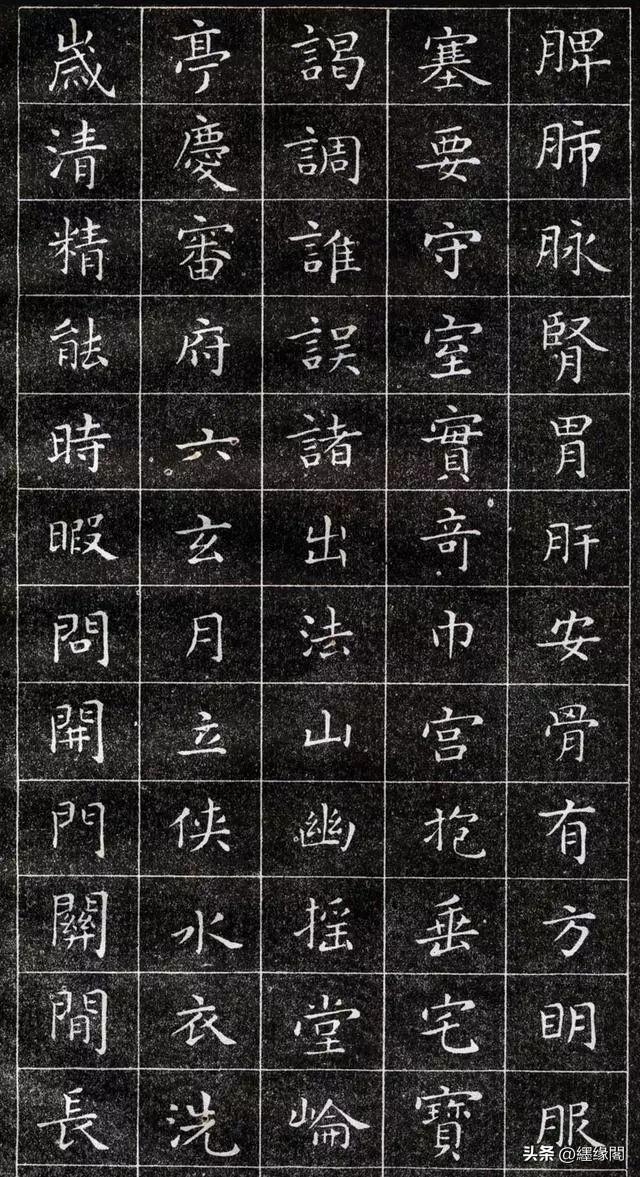 脾肺脉腎胃肝安骨有方明服
塞要守室實奇巾宫抱垂宅寶
謁調誰誤諸出法山幽摇堂崘
亭慶審府六玄月立侠水衣洗
嵗清精能時暇問開門關閒長
头条 @纆缘閣